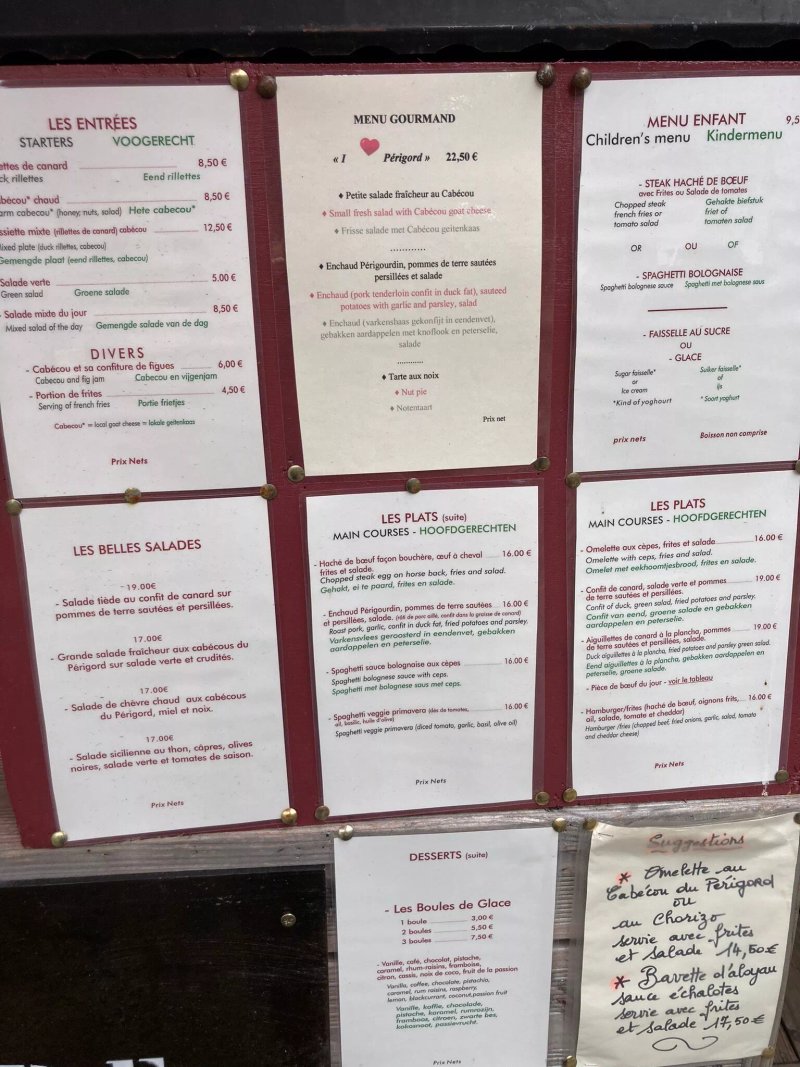 LES ENTRÉES
STARTERS VOOGERECHT
de canard 8,50 €
rillettes Eend rillettes
chaud 8,50 €
cabecou* (honey, nuts, salad) Hete cabecou*
mixte (rillettes de canard) cabécou 12,50 €
plate (duck rillettes, cabecou)
Gemengde plaat (eend rillettes, cabecou)
Salade verte 5.00 €
Green salad Groene salade
- Salade mixte du jour 8,50 €
Mixed salad of the day Gemengde salade van de dag
DIVERS
- Cabécou et sa confiture de figues 6,00 €
Cabecou and fig jam Cabecou en vijgenjam
- Portion de frites 4,50 €
Serving of french fries Portie frietjes
Cabecou* = local goat cheese = lokale geitenkaas
Prix Nets
MENU GOURMAND
« I Périgord » 22,50 €
♦ Petite salade fraîcheur au Cabécou
♦ Small fresh salad with Cabécou goat cheese
♦ Frisse salade met Cabécou geitenkaas
............
♦ Enchaud Périgourdin, pommes de terre sautées
persillées et salade
♦ Enchaud (pork tenderloin confit in duck fat), sauteed
potatoes with garlic and parsley, salad
♦ Enchaud (varkenshaas gekonfijt in eendenvet),
gebakken aardappelen met knoflook en peterselie,
salade
............
♦ Tarte aux noix
♦ Nut pie
♦ Notentaart
Prix net
MENU ENFANT 9,5
Children's menu Kindermenu
- STEAK HACHÉ DE BŒUF
avec Frites ou Salade de tomates
Chopped steak Gehakte biefstuk
french fries or friet of
tomato salad tomaten salad
OR OU OF
- SPAGHETTI BOLOGNAISE
Spaghetti bolognese sauce Spaghetti met bolognese saus
- FAISSELLE AU SUCRE
OU
- GLACE
Sugar faisselle* Suiker faisselle*
or of
Ice cream ijs
*Kind of yoghourt * Soort yoghurt
prix nets Boisson non comprise
LES BELLES SALADES
19.00€
- Salade tiède au confit de canard sur
pommes de terre sautées et persillées.
17.00€
- Grande salade fraîcheur aux cabécous du
Périgord sur salade verte et crudités.
17.00€
- Salade de chèvre chaud aux cabécous
du Périgord, miel et noix.
17.00€
- Salade sicilienne au thon, câpres, olives
noires, salade verte et tomates de saison.
Prix Nets
LES PLATS (suite)
MAIN COURSES - HOOFDGERECHTEN
- Haché de bœuf façon bouchère, œuf à cheval 16.00 €
frites et salade.
Chopped steak egg on horse back, fries and salad.
Gehakt, ei te paard, frites en salade.
- Enchaud Périgourdin, pommes de terre sautées 16.00 €
et persillées, salade. (rôti de porc aillé, confit dans la graisse de canard)
Roast pork, garlic, confit in duck fat, fried potatoes and parsley.
Varkensvlees geroosterd in eendenvet, gebakken
aardappelen en peterselie.
- Spaghetti sauce bolognaise aux cèpes 16.00 €
Spaghetti bolognese sauce with ceps.
Spaghetti met bolognese saus met ceps.
- Spaghetti veggie primavera (dés de tomates, 16.00 €
ail, basilic, huile d'olive)
Spaghetti veggie primavera (diced tomato, garlic, basil, olive oil)
Prix Nets
LES PLATS
MAIN COURSES - HOOFDGERECHTEN
- Omelette aux cèpes, frites et salade 16.00 €
Omelette with ceps, fries and salad.
Omelet met eekhoorntjesbrood, frites en salade.
- Confit de canard, salade verte et pommes 19.00 €
de terre sautées et persillées.
Confit of duck, green salad, fried potatoes and parsley.
Confit van eend, groene salade en gebakken
aardappelen en peterselie.
- Aiguillettes de canard à la plancha, pommes 19.00 €
de terre sautées et persillées, salade.
Duck aiguillettes à la plancha, fried potatoes and parsley green salad.
Eend aiguillettes à la plancha, gebakken aardappelen en
peterselie, groene salade.
- Pièce de bœuf du jour - voir le tableau
- Hamburger/frites (haché de bœuf, oignons frits, 16.00 €
ail, salade, tomate et cheddar)
Hamburger /fries (chopped beef, fried onions, garlic, salad, tomato
and cheddar cheese)
Prix Nets
DESSERTS (suite)
- Les Boules de Glace
1 boule 3,00 €
2 boules 5,50 €
3 boules 7,50 €
- Vanille, café, chocolat, pistache,
caramel, rhum-raisins, framboise,
citron, cassis, noix de coco, fruit de la passion
Vanilla, coffee, chocolate, pistachio,
caramel, rum raisins, raspberry,
lemon, blackcurrant, coconut,passion fruit
Vanille, koffie, chocolade,
pistache, karamel, rumrozijn,
framboos, citroen, zwarte bes,
kokosnoot, passievrucht.
Prix Nets
Suggestions
* Omelette au
Cabécou du Périgord
ou
au Chorizo
servie avec frites
et salade 14,50€
* Bavette d'aloyau
sauce échalotes
servie avec frites
et salade 17,50€